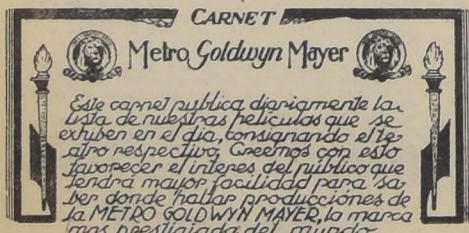 CARNET
Metro Goldwyn Mayer
Este carnet publica diariamente la
lista de nuestras peliculas que se
exhiben en el dia, consignando el te-
atro respectivo, Creemos con esto
favorecer el interes del público que
tendrá mayor facilidad para sa-
ber donde hallar producciónes de
la METRO GOLDWYN MAYER, la marca
mas prestigiada del mundo